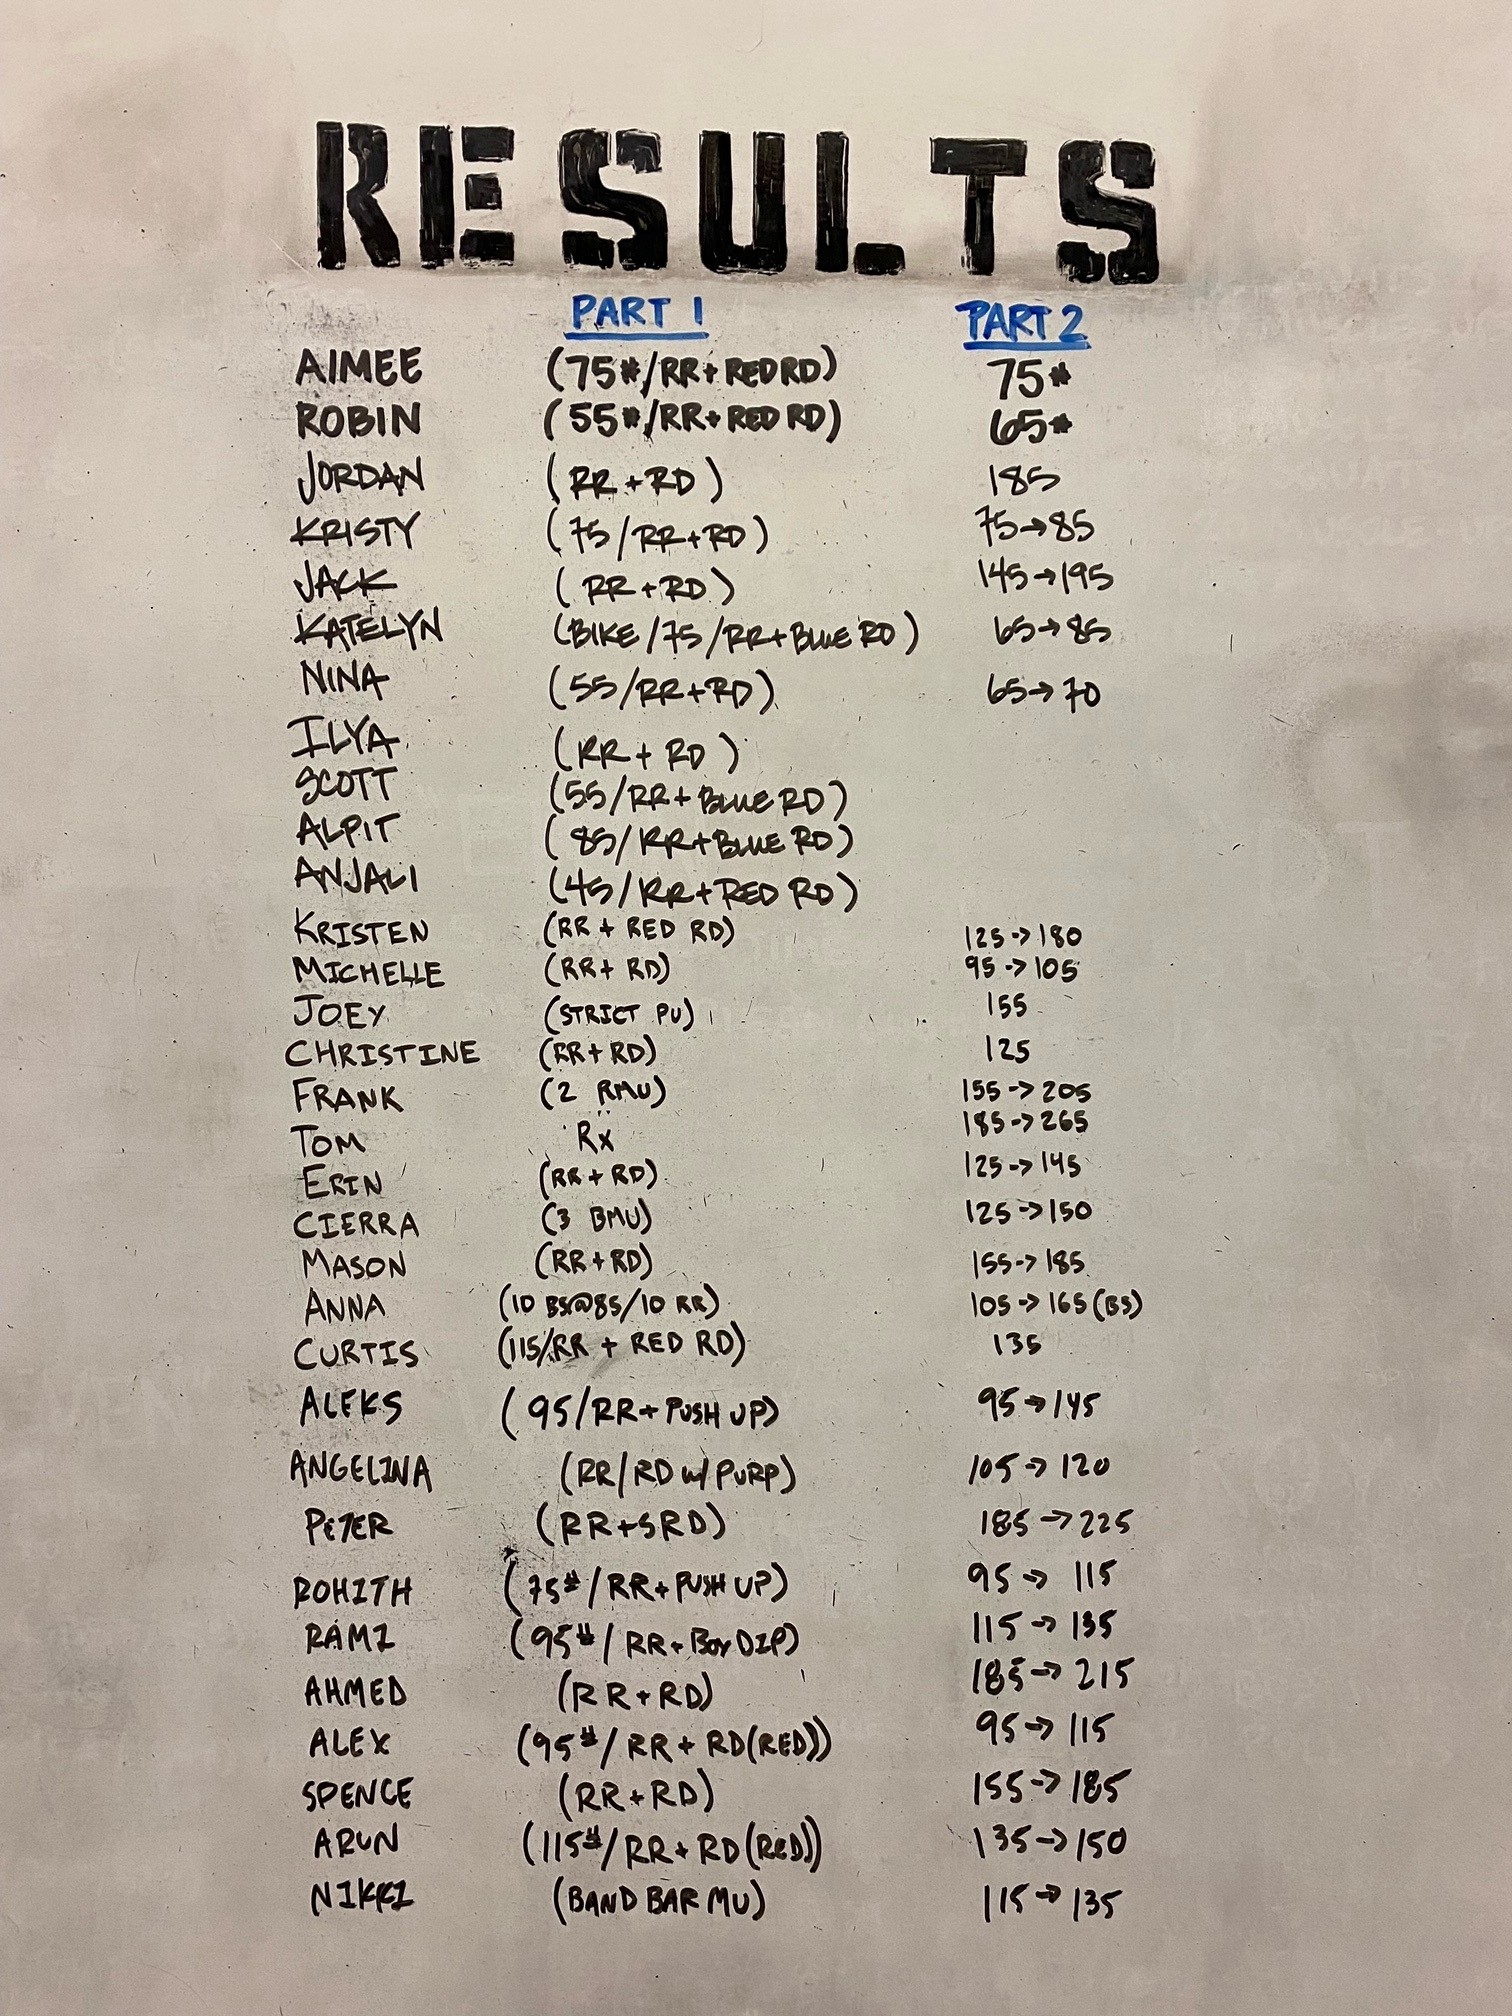 RESULTS
PART 1 PART 2
AIMEE (75#/RR+RED RD) 75#
ROBIN (55#/RR+RED RD) 65#
JORDAN (RR+RD) 185
KRISTY (75/RR+RD) 75→85
JACK (RR+RD) 145→195
KATELYN (BIKE/75/RR+BLUE RD) 65→85
NINA (55/RR+RD) 65→70
ILYA (RR+RD)
SCOTT (55/RR+BLUE RD)
ALPIT (85/RR+BLUE RD)
ANJALI (45/RR+RED RD)
KRISTEN (RR+RED RD) 125→180
MICHELLE (RR+RD) 95→105
JOEY (STRICT PU) 155
CHRISTINE (RR+RD) 125
FRANK (2 RMU) 155→205
TOM Rx 185→265
ERIN (RR+RD) 125→145
CIERRA (3 BMU) 125→150
MASON (RR+RD) 155→185
ANNA (10 BS@85/10 RR) 105→165(BS)
CURTIS (115/RR + RED RD) 135
ALEKS (95/RR+PUSH UP) 95→145
ANGELINA (RR/RD W/ PURP) 105→120
PETER (RR+SRD) 185→225
ROHITH (75#/RR+PUSH UP) 95→115
RAMI (95#/RR+BOX DIP) 115→135
AHMED (RR+RD) 185→215
ALEX (95#/RR+RD(RED)) 95→115
SPENCE (RR+RD) 155→185
ARUN (115#/RR+RD(RED)) 135→150
NIKKI (BAND BAR MU) 115→135